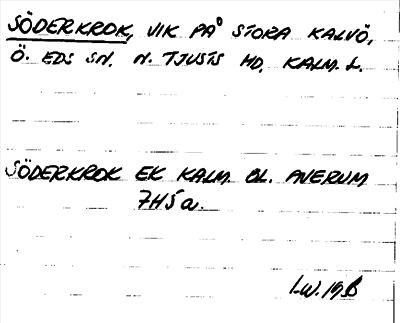 SÖDERKROK, VIK PÅ STORA KALVÖ,
Ö. EDS SN. N. TJUSTS HD. KALM. L.
SÖDERKROK EK KALM BL. AVERUM
7H5a.
I.W.